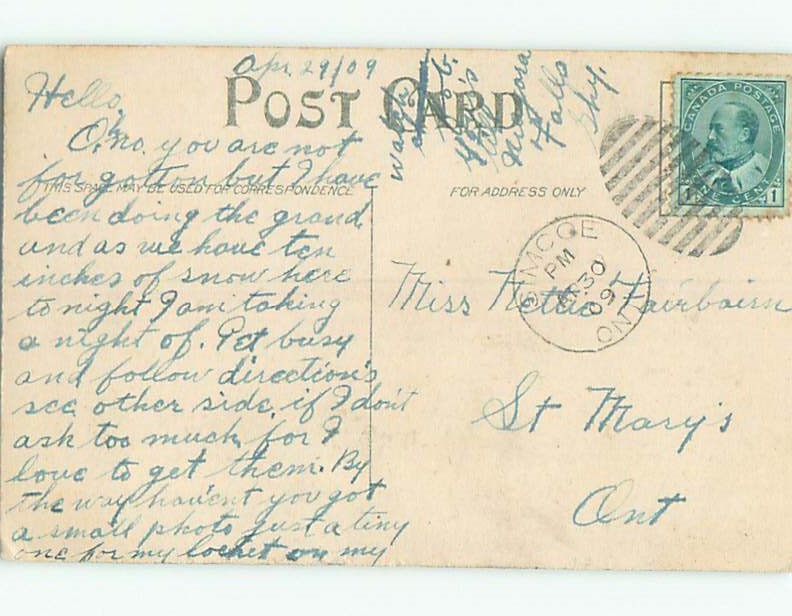 Apr. 29/09
Hello,
POST CARD
Oh, no. you are not
forgotton but I have
THIS SPACE MAY BE USED FOR CORRESPONDENCE
been doing the grand
and as we have ten
inches of snow here
to night I am taking
a night of. Get busy
and follow direction's
see other side, if I don't
ask too much, for I
love to get them. By
the way haven't you got
a small photo just a tiny
one for my locket on my
watch
Niagara
Falls
FOR ADDRESS ONLY
CANADA POSTAGE
ONE CENT
1
SIMCOE
PM
AP 30
09
ONT
Miss Nettie Fairbairn
St Mary's
Ont